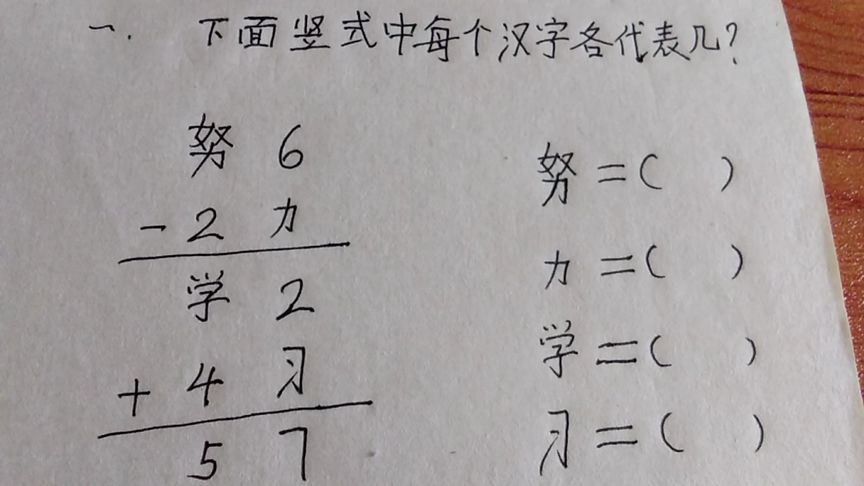 一. 下面竖式中每个汉字各代表几?
努 6
- 2 力
学 2
+ 4 习
5 7
努=( )
力=( )
学=( )
习=( )